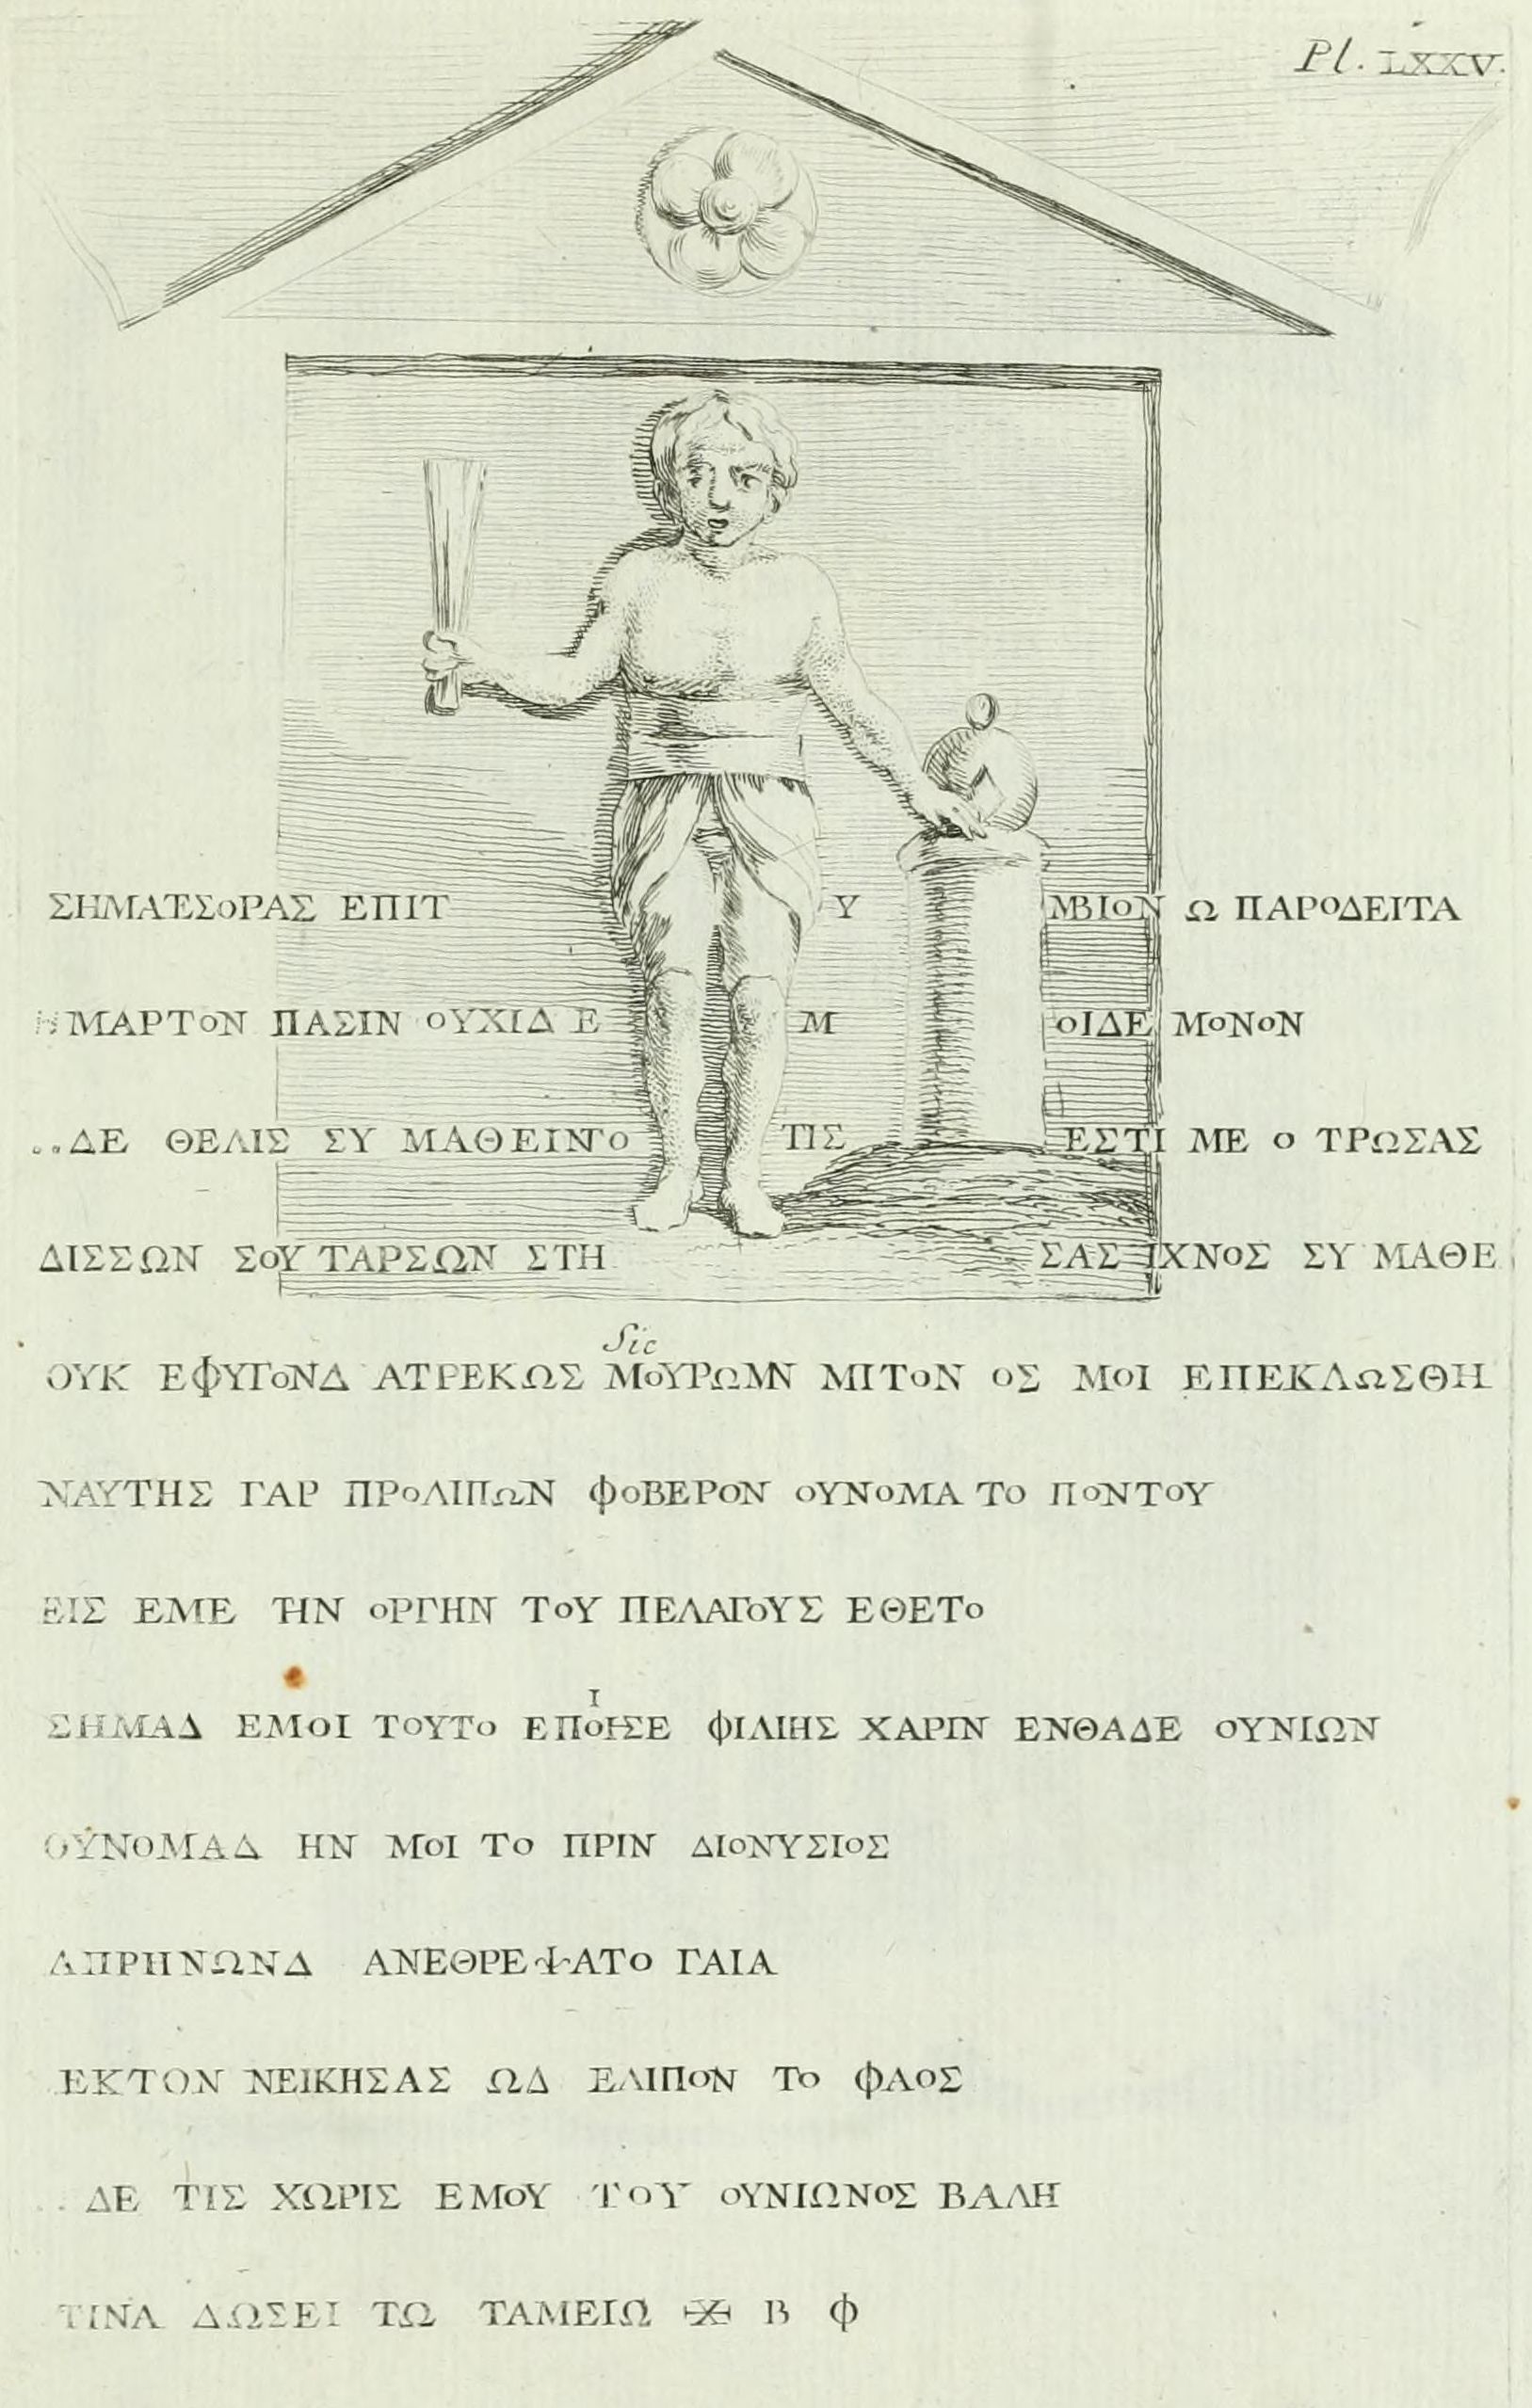 Pl. LXXV.
ΣΗΜΑΤΕΣΟΡΑΣ ΕΠΙΤΥΜΒΙΟΝ Ω ΠΑΡΟΔΕΙΤΑ
ΗΜΑΡΤΟΝ ΠΑΣΙΝ ΟΥΧΙΔ ΕΜΟΙΔΕ ΜΟΝΟΝ
..ΔΕ ΘΕΛΙΣ ΣΥ ΜΑΘΕΙΝΤΟ ΤΙΣ ΕΣΤΙ ΜΕ Ο ΤΡΩΣΑΣ
ΔΙΣΣΩΝ ΣΟΥ ΤΑΡΣΩΝ ΣΤΗΣΑΣ ΙΧΝΟΣ ΣΥ ΜΑΘΕ
Sic
ΟΥΚ ΕΦΥΓΟΝΔ ΑΤΡΕΚΩΣ ΜΟΥΡΩΜΝ ΜΙΤΟΝ ΟΣ ΜΟΙ ΕΠΕΚΛΩΣΘΗ
ΝΑΥΤΗΣ ΓΑΡ ΠΡΟΛΙΠΩΝ ΦΟΒΕΡΟΝ ΟΥΝΟΜΑ ΤΟ ΠΟΝΤΟΥ
ΕΙΣ ΕΜΕ ΤΗΝ ΟΡΓΗΝ ΤΟΥ ΠΕΛΑΓΟΥΣ ΕΘΕΤΟ
ΣΗΜΑΔ ΕΜΟΙ ΤΟΥΤΟ ΕΠΟΙΗΣΕ ΦΙΛΙΗΣ ΧΑΡΙΝ ΕΝΘΑΔΕ ΟΥΝΙΩΝ
ΟΥΝΟΜΑΔ ΗΝ ΜΟΙ ΤΟ ΠΡΙΝ ΔΙΟΝΥΣΙΟΣ
ΑΠΡΗΝΩΝΔ ΑΝΕΘΡΕΨΑΤΟ ΓΑΙΑ
ΕΚΤΟΝ ΝΕΙΚΗΣΑΣ ΩΔ ΕΛΙΠΟΝ ΤΟ ΦΑΟΣ
..ΔΕ ΤΙΣ ΧΩΡΙΣ ΕΜΟΥ ΤΟΥ ΟΥΝΙΩΝΟΣ ΒΑΛΗ
ΤΙΝΑ ΔΩΣΕΙ ΤΩ ΤΑΜΕΙΩ Β Φ